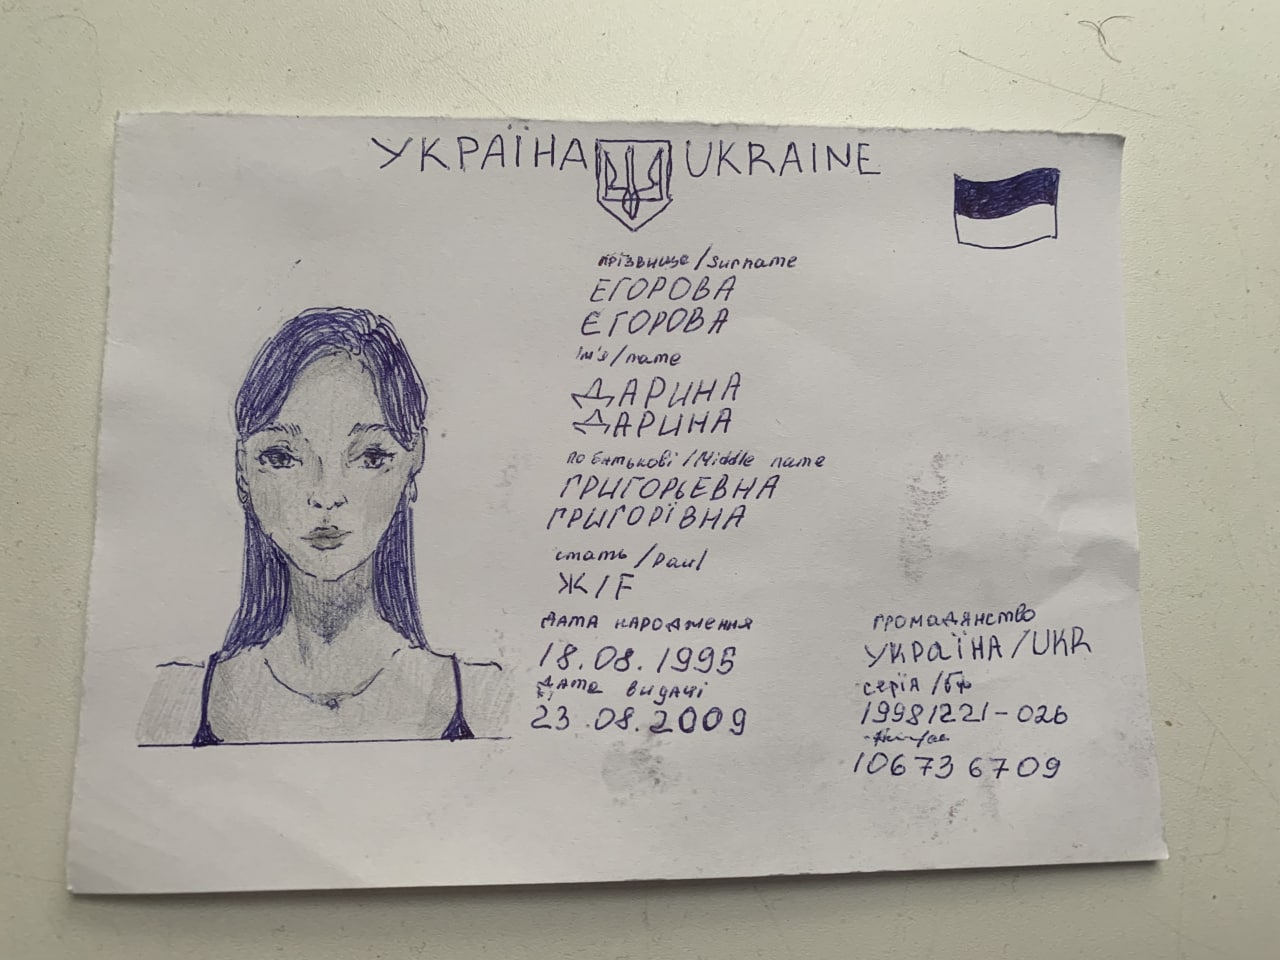 УКРАЇНА UKRAINE
прізвище/surname
ЕГОРОВА
ЄГОРОВА
ім'я/name
ДАРИНА
ДАРИНА
по батькові/Middle name
ГРИГОРЬЕВНА
ГРИГОРІВНА
стать/
Ж/F
ДАТА НАРОДЖЕННЯ
18.08.1995
Дата видачі
23.08.2009
ГРОМАДЯНСТВО
УКРАЇНА/UKR
серія/
19981221-026
106736709